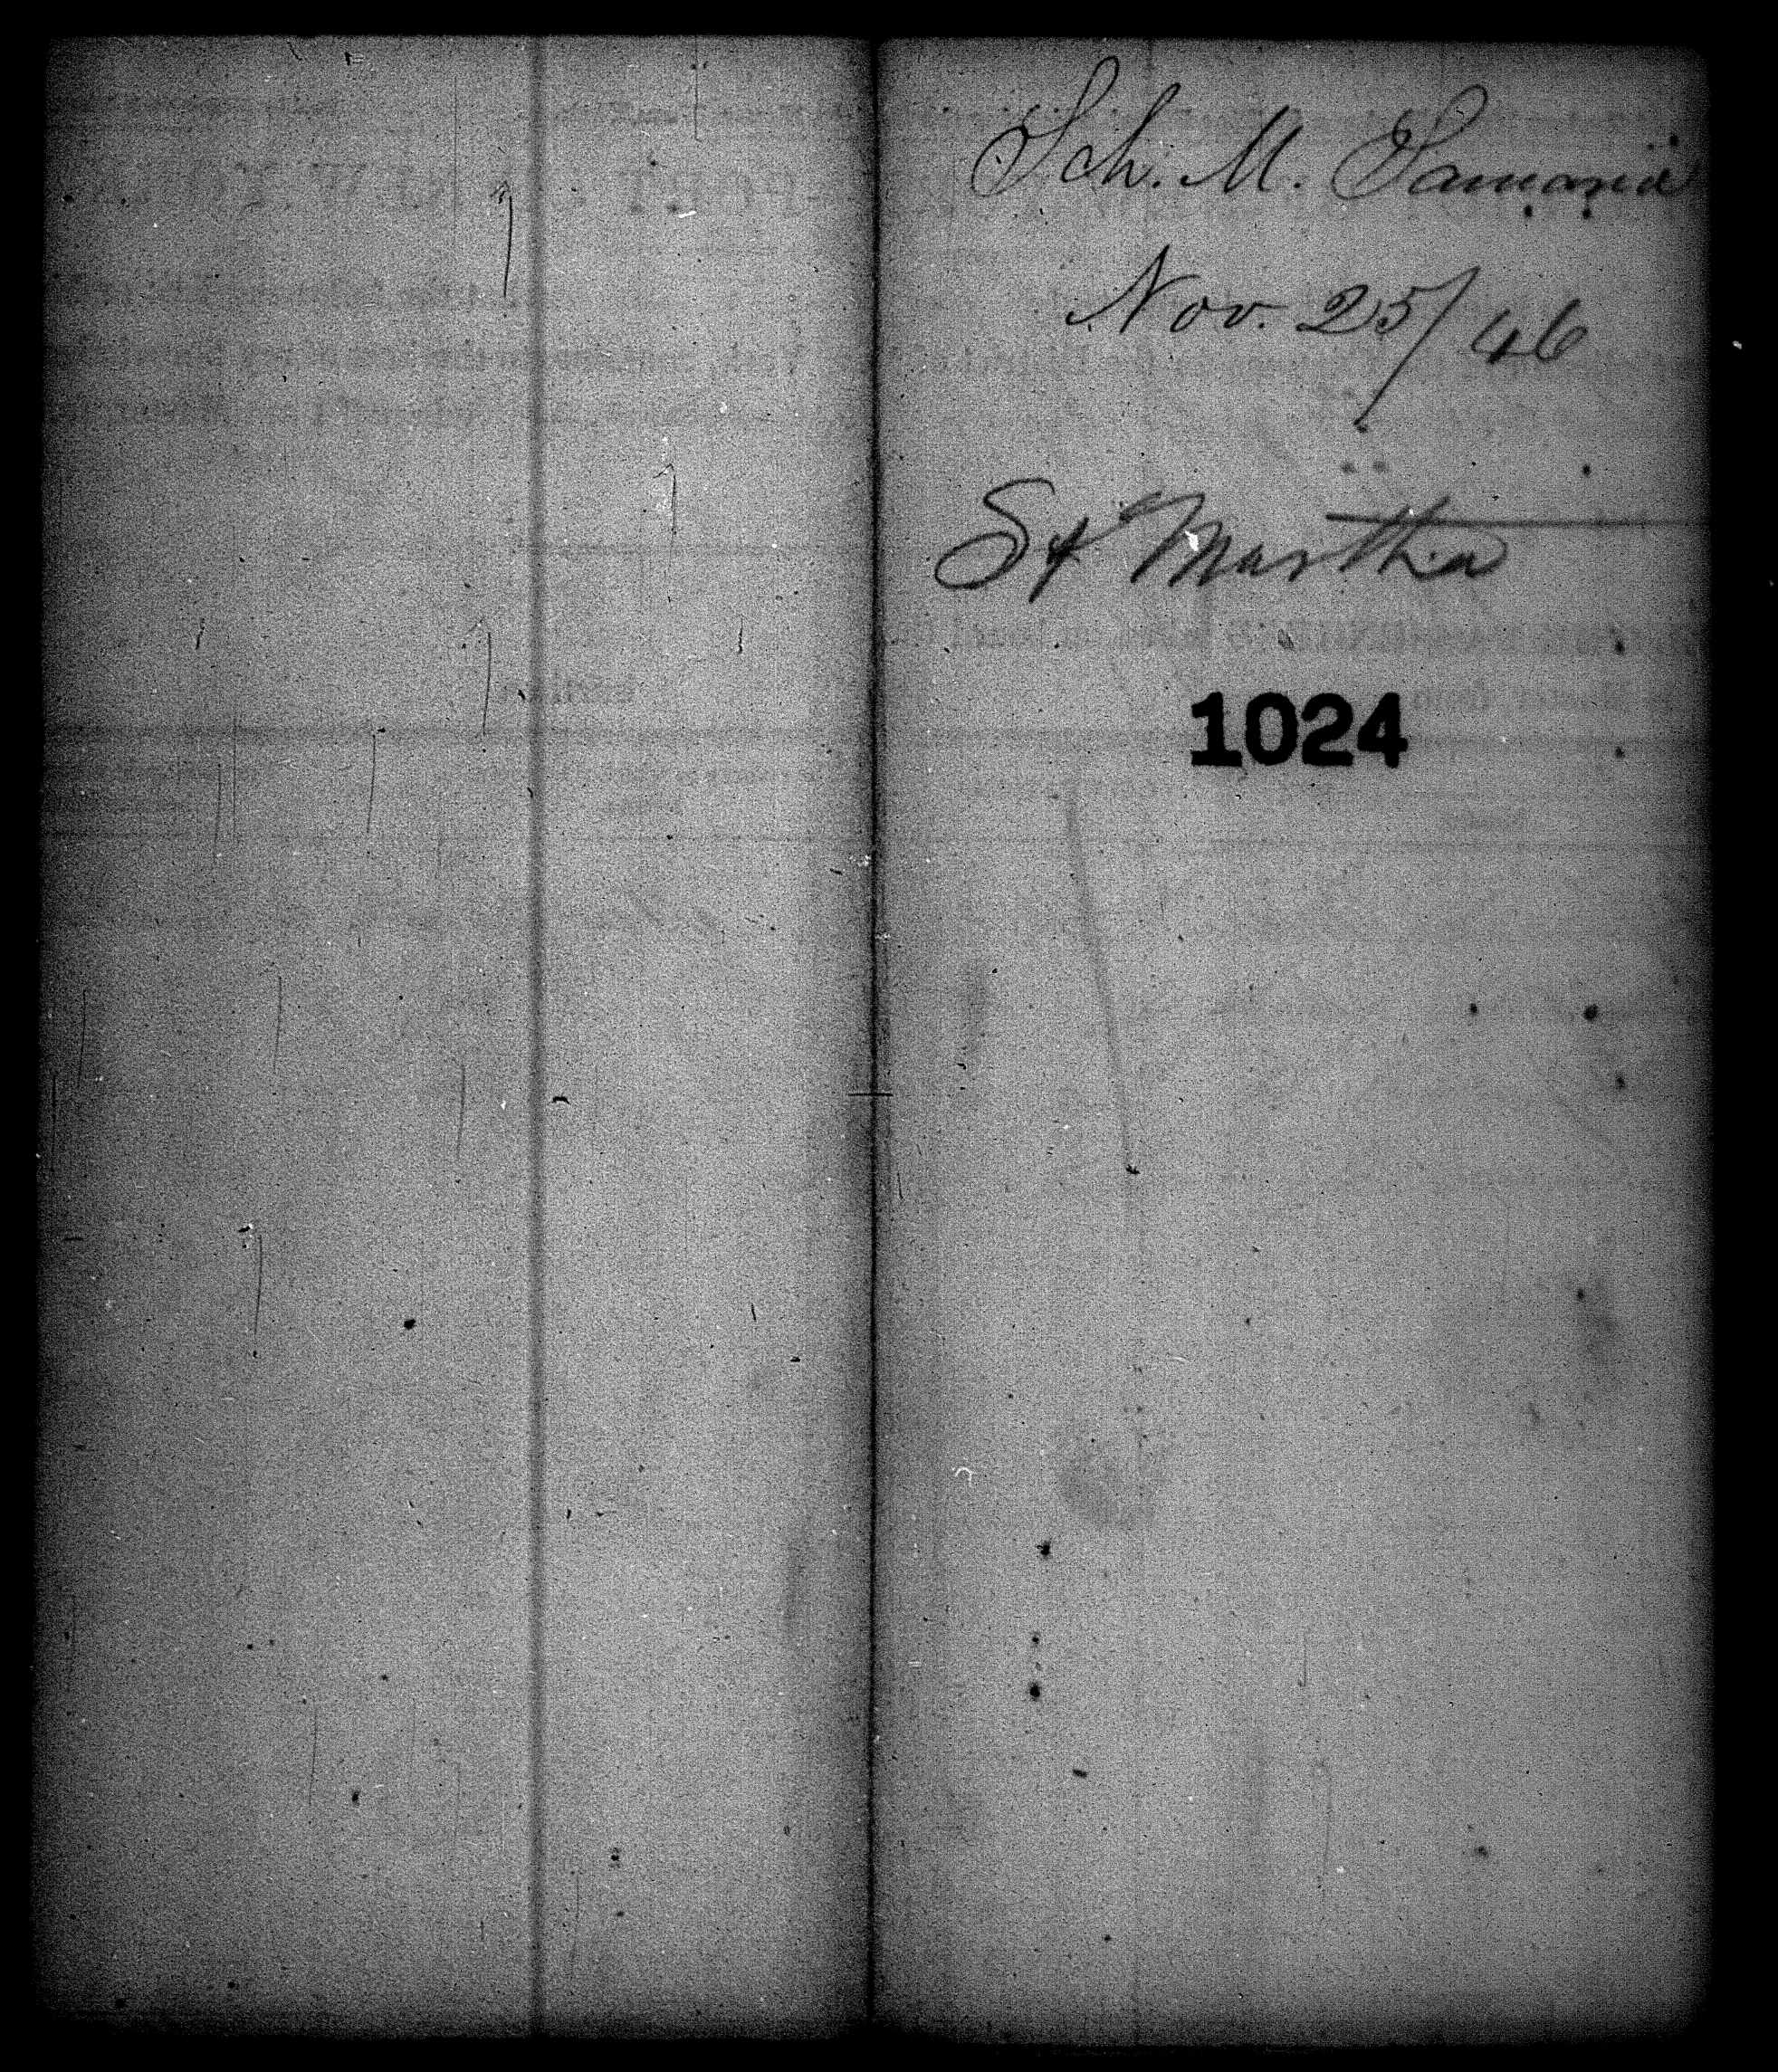 Sch. M. Samaria
Nov. 25/46
St Martha
1024